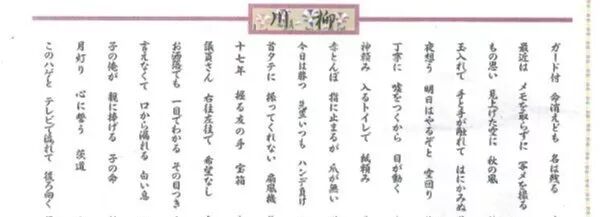 川柳
ガード付 命消えども 名は残る
最近は メモを取らずに 写メを撮る
もの思い 見上げた空に 秋の風
玉入れで 手と手が触れて はにかみぬ
夜想う 明日はやるぞと 空回り
丁寧に 嘘をつくから 目が動く
神頼み 入るトイレで 紙頼み
赤とんぼ 指に止まるが 爪が無い
今日は勝つ 見栄いつも ハンデ負け
首タテに 振ってくれない 扇風機
十七年 握る友の手 宝箱
議員さん 右往左往で 希望なし
お洒落でも 一目でわかる その目つき
言えなくて 口から漏れる 白い息
子の俺が 親に捧げる 子の命
月灯り 心に誓う 茨道
このハゲと テレビで流れて 後ろ向く